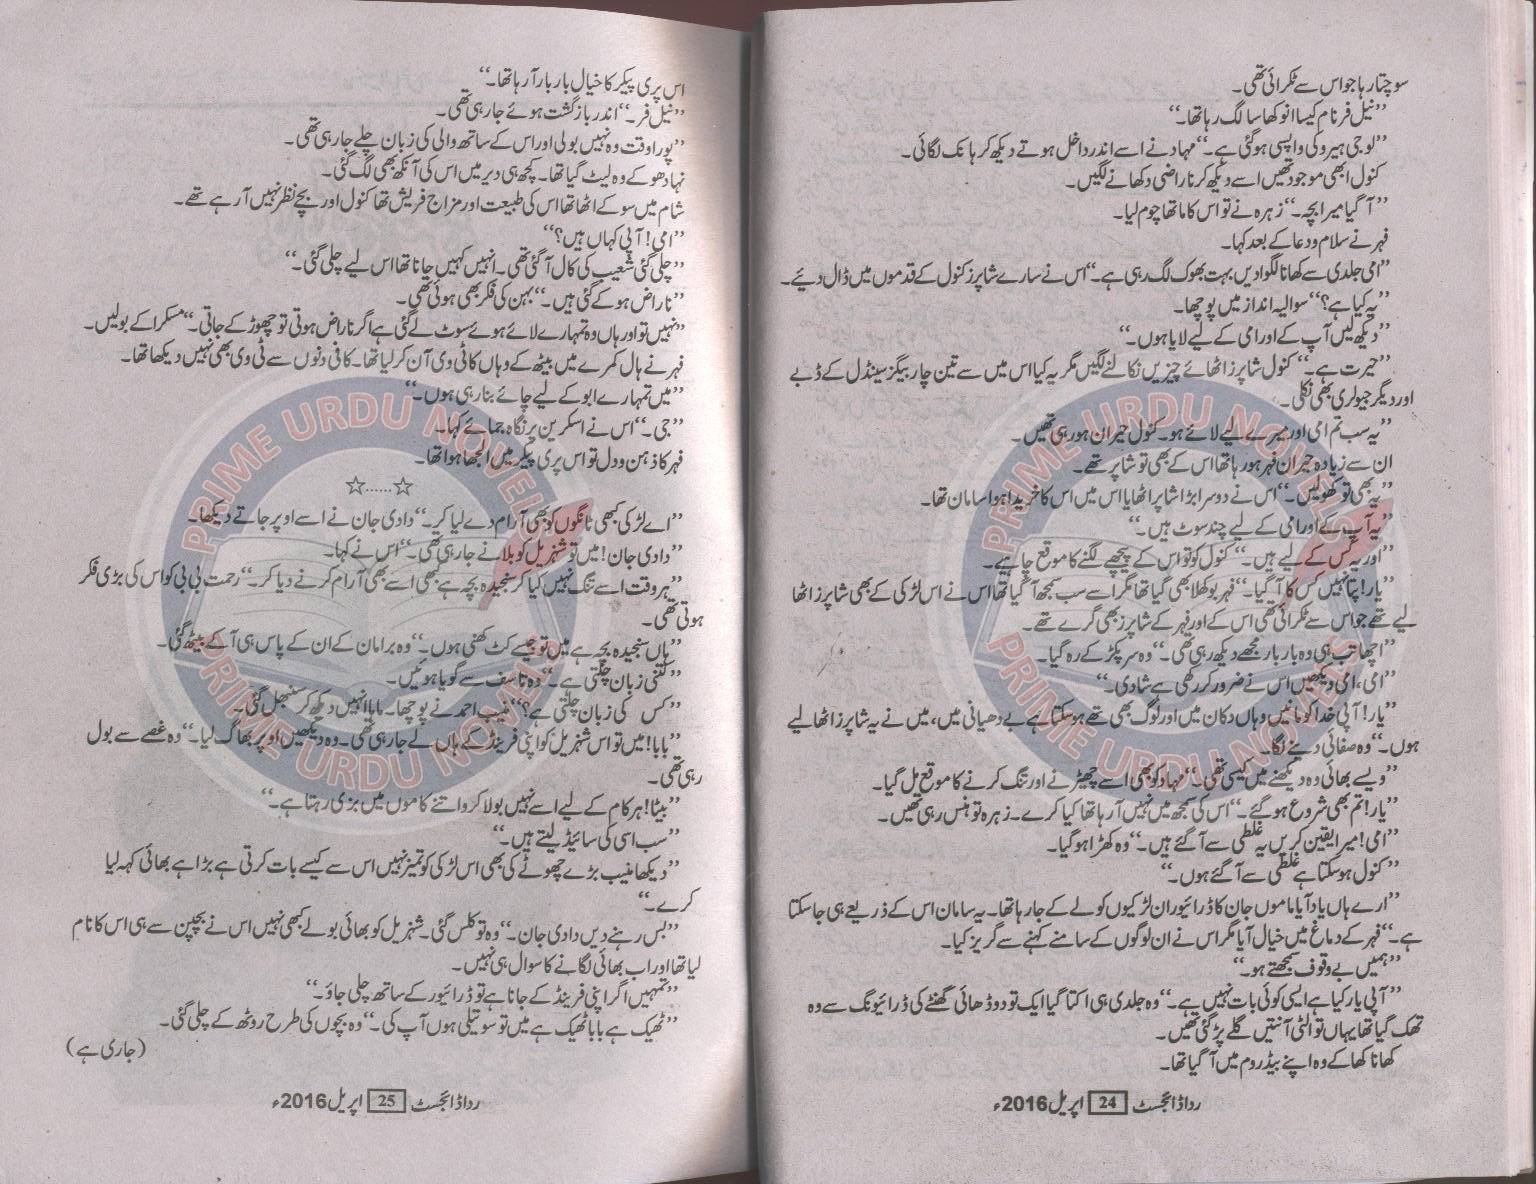 سوچتا رہا جو اس سے ٹکرائی تھی۔
’’نیل فر نام کیسا انوکھا سا لگ رہا تھا۔‘‘
’’لو جی ہیرو کی واپسی ہو گئی ہے۔‘‘ مہاد نے اسے اندر داخل ہوتے دیکھ کر ہانک لگائی۔
کنول ابھی موجود تھیں اسے دیکھ کر ناراضی دکھانے لگیں۔
’’آ گیا میرا بچہ۔‘‘ زہرہ نے تو اس کا ماتھا چوم لیا۔
فہر نے سلام و دعا کے بعد کہا۔
’’امی جلدی سے کھانا لگوا دیں بہت بھوک لگ رہی ہے۔‘‘ اس نے سارے شاپرز کنول کے قدموں میں ڈال دیئے۔
’’یہ کیا ہے؟‘‘ سوالیہ انداز میں پوچھا۔
’’دیکھ لیں آپ کے اور امی کے لیے لایا ہوں۔‘‘
’’حیرت ہے۔‘‘ کنول شاپرز اٹھائے چیزیں نکالنے لگیں مگر یہ کیا اس میں سے تین چار بیگز سینڈل کے ڈبے
اور دیگر جیولری بھی نکلی۔
’’یہ سب تم امی اور میرے لیے لائے ہو۔ کنول حیران ہو رہی تھیں۔
ان سے زیادہ حیران فہر ہو رہا تھا اس کے بھی تو شاپر تھے۔
’’یہ بھی تو کھولیں۔‘‘ اس نے دوسرا بڑا شاپر اٹھایا اس میں اس کا خریدا ہوا سامان تھا۔
’’یہ آپ کے اور امی کے لیے چند سوٹ ہیں۔‘‘
’’اور یہ کس کے لیے ہیں۔‘‘ کنول کو تو اس کے پیچھے لگنے کا موقع چاہیے۔
’’یار! پتا نہیں کس کا آ گیا۔‘‘ فہر بوکھلا بھی گیا تھا مگر اسے سب سمجھ آ گیا تھا اس نے اس لڑکی کے بھی شاپرز اٹھا
لیے تھے جو اس سے ٹکرائی تھی اس کے اور فہر کے شاپرز بھی گرے تھے۔
’’اچھا تب ہی وہ بار بار مجھے دیکھ رہی تھی۔‘‘ وہ سر پکڑ کے رہ گیا۔
’’امی، امی دیکھیں اس نے ضرور کر رکھی ہے شادی۔‘‘
’’یار! آپی خدا کو مانیں وہاں دکان میں اور لوگ بھی تھے ہو سکتا ہے بے دھیانی میں، میں نے یہ شاپرز اٹھا لیے
ہوں۔‘‘ وہ صفائی دینے لگا۔
’’ویسے بھائی وہ دیکھنے میں کیسی تھی۔‘‘ مہاد کو بھی اسے چھیڑنے اور تنگ کرنے کا موقع مل گیا۔
’’یار! تم بھی شروع ہو گئے۔‘‘ اس کی سمجھ میں نہیں آ رہا تھا کیا کرے۔ زہرہ تو ہنس رہی تھیں۔
’’امی! میرا یقین کریں یہ غلطی سے آ گئے ہیں۔‘‘ وہ کھڑا ہو گیا۔
’’کنول ہو سکتا ہے غلطی سے آ گئے ہوں۔‘‘
’’ارے ہاں یاد آیا ماموں جان کا ڈرائیور ان لڑکیوں کو لے کے جا رہا تھا۔ یہ سامان اس کے ذریعے ہی جا سکتا
ہے۔‘‘ فہر کے دماغ میں خیال آیا مگر اس نے ان لوگوں کے سامنے کہنے سے گریز کیا۔
’’ہمیں بے وقوف سمجھتے ہو۔‘‘
’’آپی یار کیا ہے ایسی کوئی بات نہیں ہے۔‘‘ وہ جلدی ہی اکتا گیا ایک تو دو ڈھائی گھنٹے کی ڈرائیونگ سے وہ
تھک گیا تھا یہاں تو الٹی آنتیں گلے پڑ گئی تھیں۔
کھانا کھا کے وہ اپنے بیڈ روم میں آ گیا تھا۔
ردا ڈائجسٹ 24 اپریل 2016ء
اس پری پیکر کا خیال بار بار آ رہا تھا۔‘‘
’’نیل فر۔‘‘ اندر بازگشت ہوئے جا رہی تھی۔
’’پورا وقت وہ نہیں بولی اور اس کے ساتھ والی کی زبان چلے جا رہی تھی۔
نہا دھو کے وہ لیٹ گیا تھا۔ کچھ ہی دیر میں اس کی آنکھ بھی لگ گئی۔
شام میں سو کے اٹھا تھا اس کی طبیعت اور مزاج فریش تھا کنول اور بچے نظر نہیں آ رہے تھے۔
’’امی! آپی کہاں ہیں؟‘‘
’’چلی گئی شعیب کی کال آ گئی تھی۔ انہیں کہیں جانا تھا اس لیے چلی گئی۔‘‘
’’ناراض ہو کے گئی ہیں۔‘‘ بہن کی فکر بھی ہوئی تھی۔
’’نہیں تو اور ہاں وہ تمہارے لائے ہوئے سوٹ لے گئی ہے اگر ناراض ہوتی تو چھوڑ کے جاتی۔‘‘ مسکرا کے بولیں۔
فہر نے ہال کمرے میں بیٹھ کے وہاں کا ٹی وی آن کر لیا تھا۔ کافی دنوں سے ٹی وی بھی نہیں دیکھا تھا۔
’’میں تمہارے ابو کے لیے چائے بنا رہی ہوں۔‘‘
’’جی۔‘‘ اس نے اسکرین پر نگاہ جمائے کہا۔
فہر کا ذہن و دل تو اس پری پیکر میں الجھا ہوا تھا۔
☆......☆
’’اے لڑکی کبھی ٹانگوں کو بھی آرام دے لیا کر۔‘‘ دادی جان نے اسے اوپر جاتے دیکھا۔
’’دادی جان! میں تو شہریل کو بلانے جا رہی تھی۔‘‘ اس نے کہا۔
’’ہر وقت اسے تنگ نہیں کیا کر سنجیدہ بچہ ہے کبھی اسے بھی آرام کرنے دیا کر۔‘‘ رحمت بی بی کو اس کی بڑی فکر
ہوتی تھی۔
’’ہاں سنجیدہ بچہ ہے میں تو جیسے کٹ کھنی ہوں۔‘‘ وہ برا مان کے ان کے پاس ہی آ کے بیٹھ گئی۔
’’کتنی زبان چلتی ہے۔‘‘ وہ تاسف سے گویا ہوئیں۔
’’کس کی زبان چلتی ہے؟‘‘ منیب احمد نے پوچھا۔ ماہا انہیں دیکھ کر سنبھل گئی۔
’’بابا! میں تو اس شہریل کو اپنی فرینڈ کے ہاں لے جا رہی تھی۔ وہ دیکھیں اوپر بھاگ لیا۔‘‘ وہ غصے سے بول
رہی تھی۔
’’بیٹا! ہر کام کے لیے اسے نہیں بولا کرو اتنے کاموں میں بزی رہتا ہے۔‘‘
’’سب اسی کی سائیڈ لیتے ہیں۔‘‘
’’دیکھا منیب بڑے چھوٹے کی بھی اس لڑکی کو تمیز نہیں اس سے کیسے بات کرتی ہے بڑا ہے بھائی کہہ لیا
کرے۔‘‘
’’بس رہنے دیں دادی جان۔‘‘ وہ تو کلس گئی۔ شہریل کو بھائی بولے کبھی نہیں اس نے بچپن سے ہی اس کا نام
لیا تھا اور اب بھائی لگانے کا سوال ہی نہیں۔
’’تمہیں اگر اپنی فرینڈ کے جانا ہے تو ڈرائیور کے ساتھ چلی جاؤ۔‘‘
’’ٹھیک ہے بابا ٹھیک ہے میں تو سوتیلی ہوں آپ کی۔‘‘ وہ بچوں کی طرح روٹھ کے چلی گئی۔
(جاری ہے)
ردا ڈائجسٹ 25 اپریل 2016ء
PRIME URDU NOVELS
PRIME URDU NOVELS
PRIME URDU NOVELS
PRIME URDU NOVELS